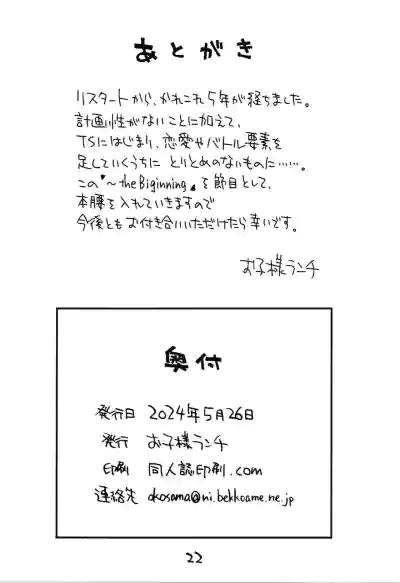 あとがき
リスタートから、かれこれ5年が経ちました。
計画性がないことに加えて、
TSにはじまり、恋愛やバトル要素を
足していくうちに とりとめのないものに……。
この『～the Biginning』を節目として、
本腰を入れていきますので
今後ともお付き合いいただけたら幸いです。
お子様ランチ
奥付
発行日 2024年5月26日
発行 お子様ランチ
印刷 同人誌印刷.com
連絡先 okosama@ni.bekkoame.ne.jp
22